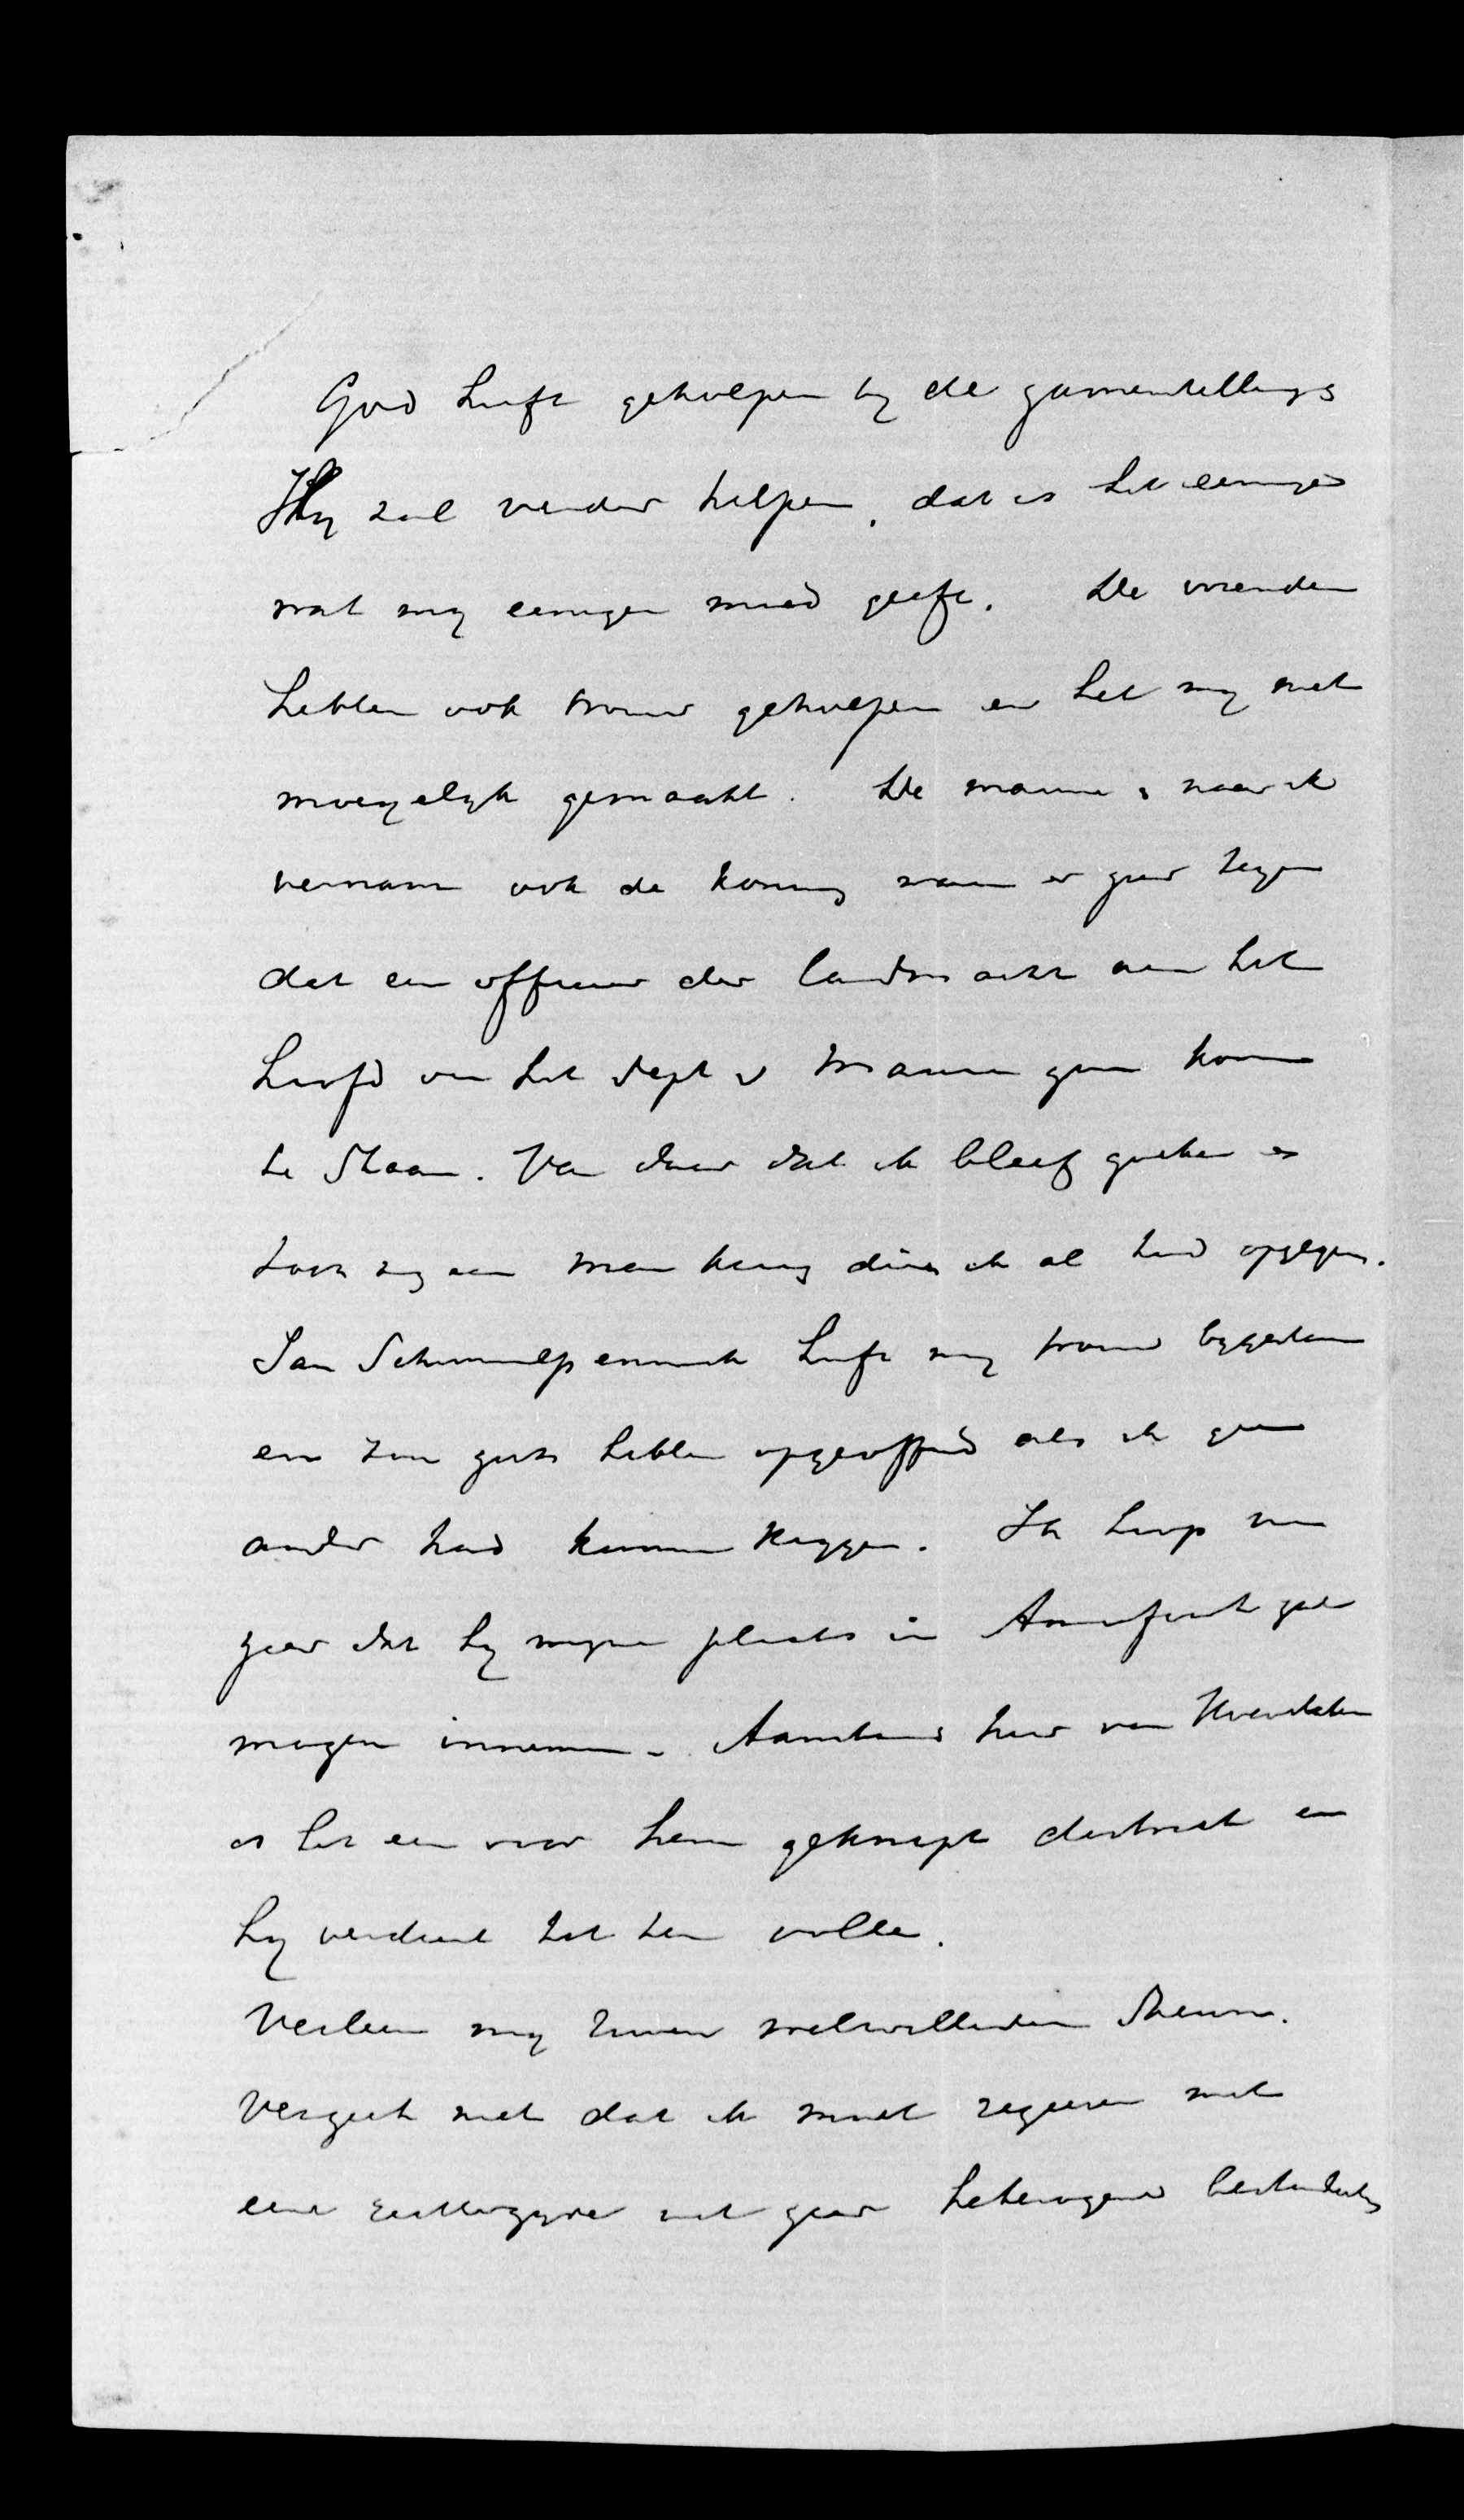 God heeft geholpen by de zamenstelling &
Hy zal verder helpen, dat is het eenige
wat my eenigen moed geeft. De vrienden
hebben ook trouw geholpen en het my niet
moeyelyk gemaakt. De marine & naar ik
vernam ook de koning waren er zeer tegen
dat een officier der landmacht aan het
hoofd van het dept v marine zou komen
te staan. Van daar dat ik bleef zoeken en
toen my aan man kreeg dien ik al had opgegeven.
Jan Schimmelpenninck heeft my trouw bygestaan
en zou zich hebben opgeofferd als ik geen
ander had kunnen krygen. Ik hoop nu
zeer dat hy myne plaats in Amersfoort zal
mogen innemen. Aanstaand heer van Hoevelaken
is het een voor hem geknipt district en
hy verdient het ten volle.
Verleen my Uwen welwillenden steun.
Vergeet niet dat ik moet regeeren met
eene rechterzyde met zeer heterogene bestanddeelen